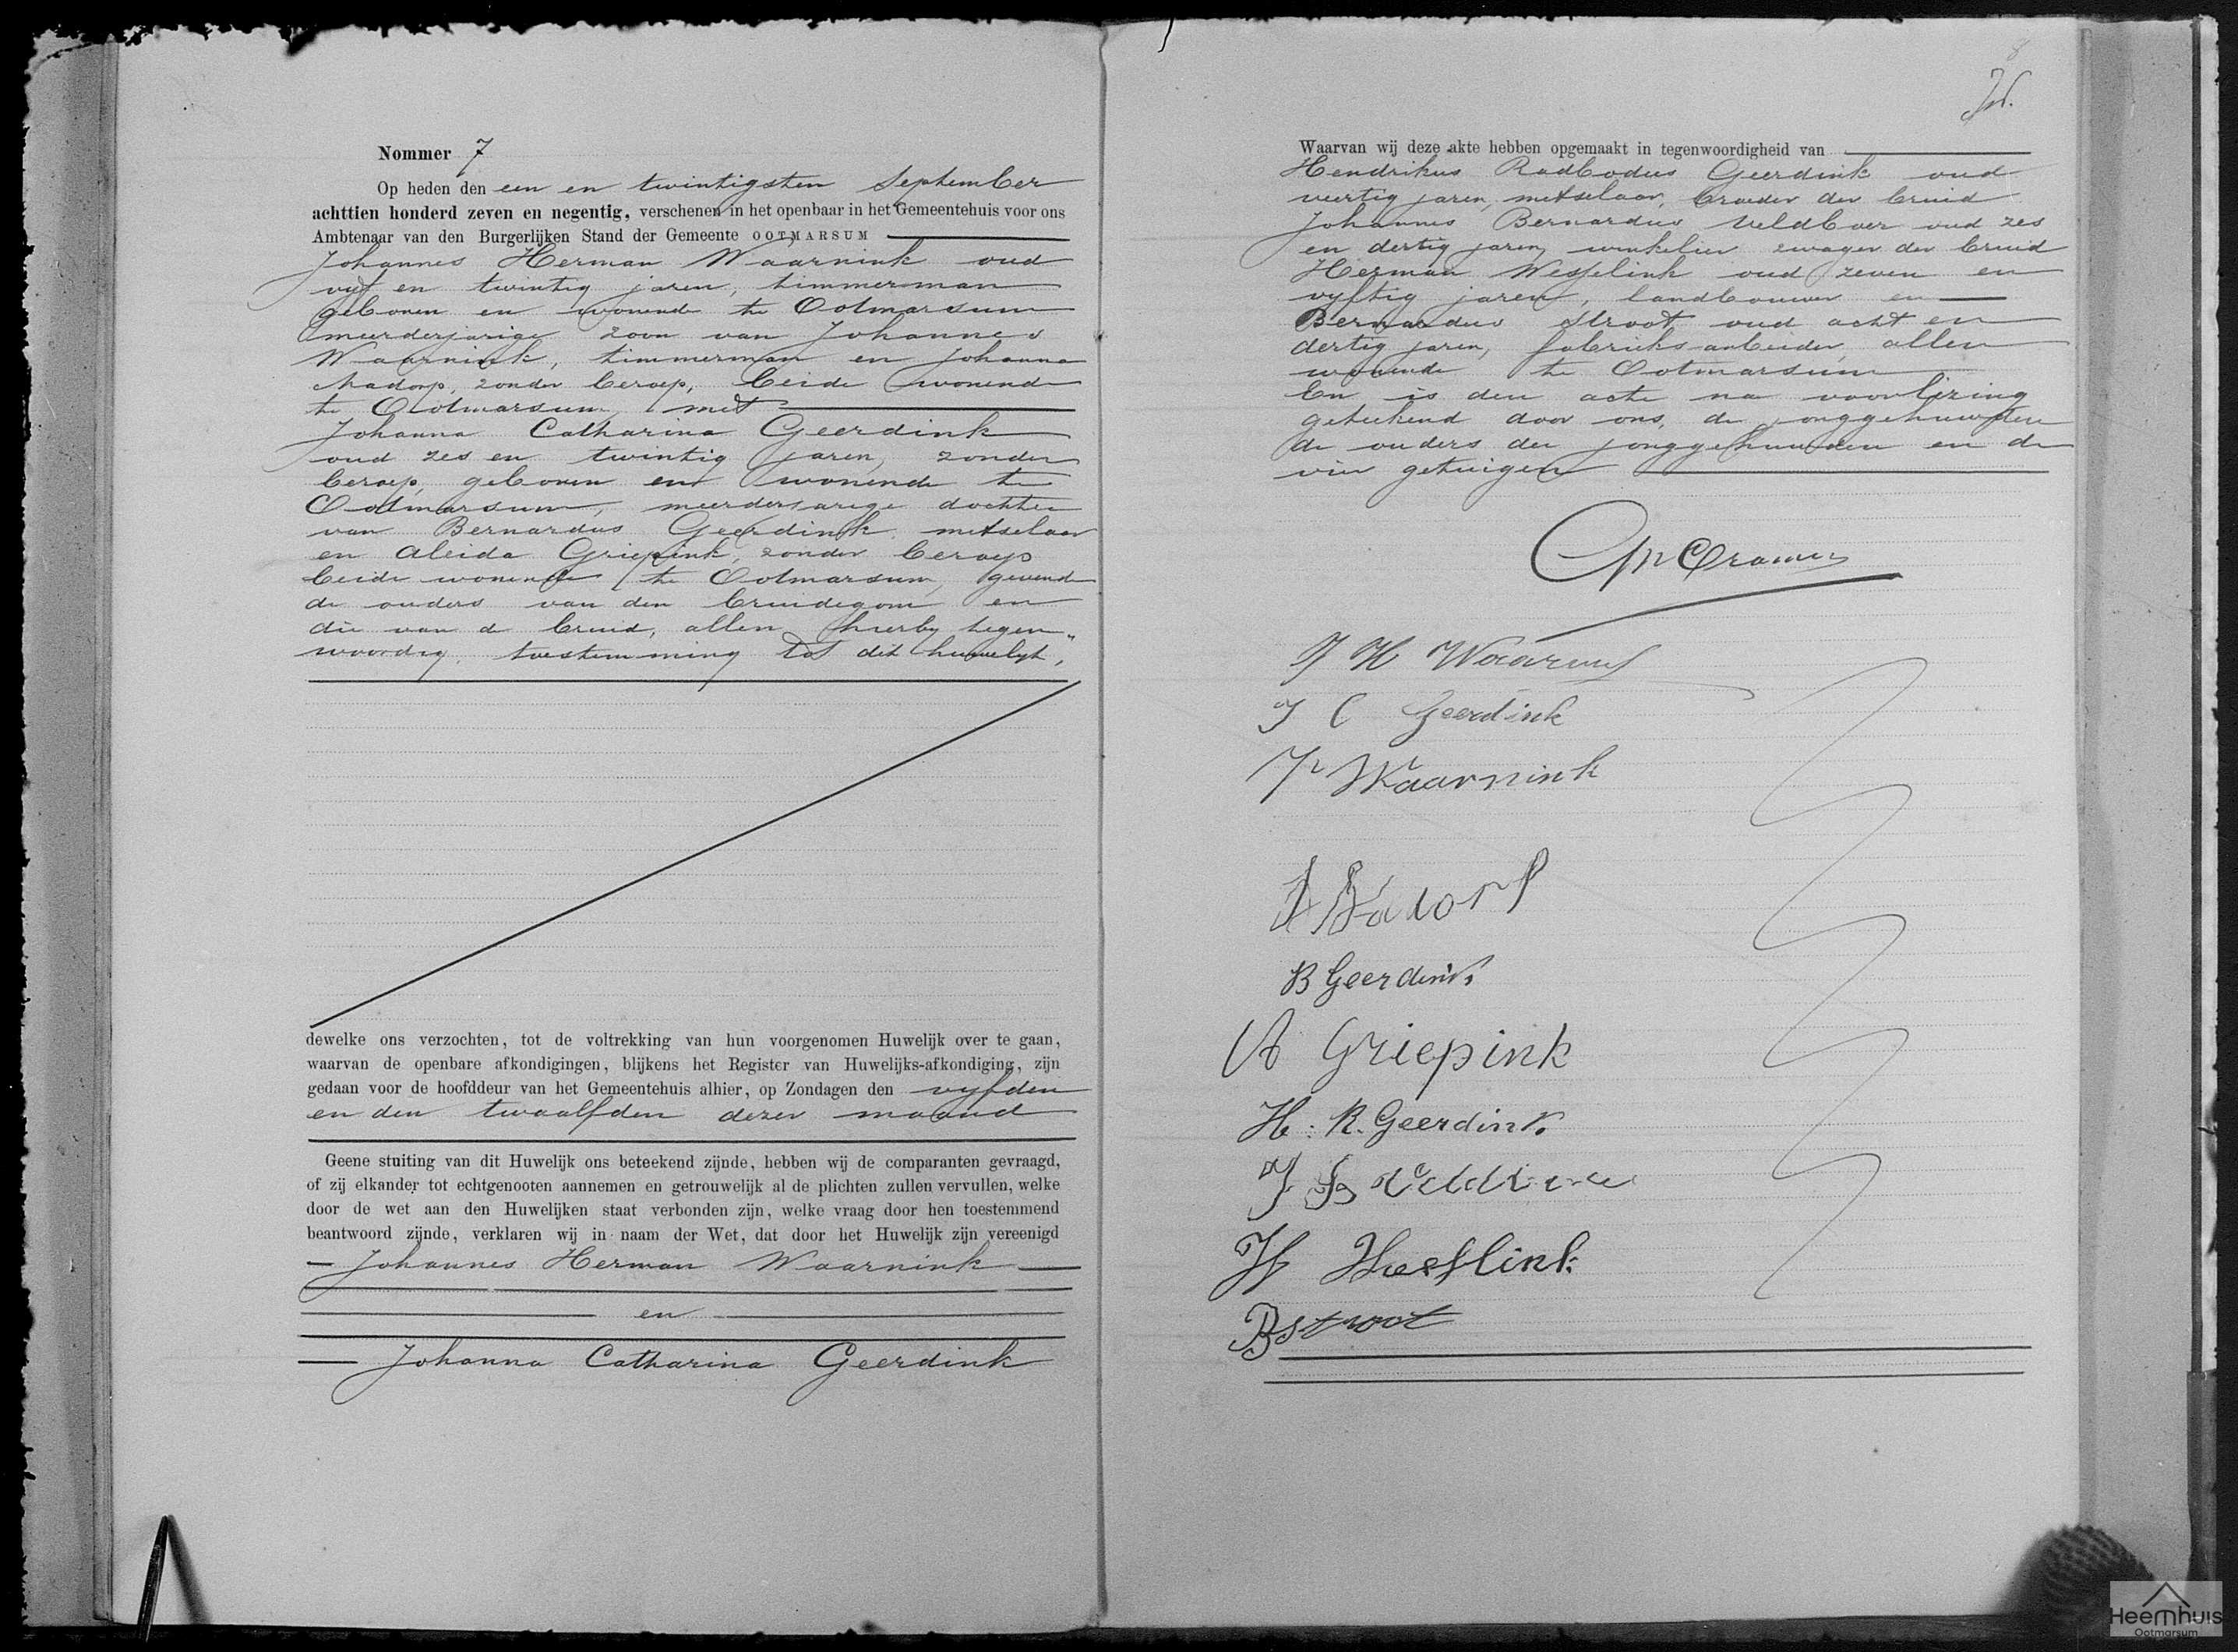 Nommer 7
Op heden den een en twintigsten September
achttien honderd zeven en negentig, verschenen in het openbaar in het Gemeentehuis voor ons
Ambtenaar van den Burgerlijken Stand der Gemeente OOTMARSUM
Johannes Herman Waarnink oud
vyf en twintig jaren, timmerman
geboren en wonende te Ootmarsum
meerderjarige zoon van Johannes
Waarnink, timmerman en Johanna
Nadorp, zonder beroep, beide wonende
te Ootmarsum, met
Johanna Catharina Geerdink
oud zes en twintig jaren, zonder
beroep, geboren en wonende te
Ootmarsum, meerderjarige dochter
van Bernardus Geerdink, metselaar
en Aleida Griepink, zonder beroep
beide wonende te Ootmarsum, gevende
de ouders van den bruidegom en
die van de bruid, allen hierby tegen„
woordig, toestemming tot dit huwelyk,
dewelke ons verzochten, tot de voltrekking van hun voorgenomen Huwelijk over te gaan,
waarvan de openbare afkondigingen, blijkens het Register van Huwelijks-afkondiging, zijn
gedaan voor de hoofddeur van het Gemeentehuis alhier, op Zondagen den vyfden
en den twaalfden dezer maand
Geene stuiting van dit Huwelijk ons beteekend zijnde, hebben wij de comparanten gevraagd,
of zij elkander tot echtgenooten aannemen en getrouwelijk al de plichten zullen vervullen, welke
door de wet aan den Huwelijken staat verbonden zijn, welke vraag door hen toestemmend
beantwoord zijnde, verklaren wij in naam der Wet, dat door het Huwelijk zijn vereenigd
Johannes Herman Waarnink
en
Johanna Catharina Geerdink
8
Waarvan wij deze akte hebben opgemaakt in tegenwoordigheid van
Hendrikus Radbodus Geerdink oud
veertig jaren, metselaar, broeder der bruid
Johannes Bernardus Veldboer oud zes
en dertig jaren, winkelier zwager der bruid
Herman Wesselink oud zeven en
vyftig jaren, landbouwer en
Bernardus Stroot, oud acht en
dertig jaren, fabrieks arbeider, allen
wonende te Ootmarsum
En is deze acte na voorlezing
geteekend door ons, de jonggehuwden
de ouders der jonggehuwden en de
vier getuigen
Cramer
J H Waarnink
J C Geerdink
J Waarnink
J Nadorp
B Geerdink
A Griepink
H. R. Geerdink
J B Veldboer
H Wesselink
B Stroot
Heemhuis
Ootmarsum